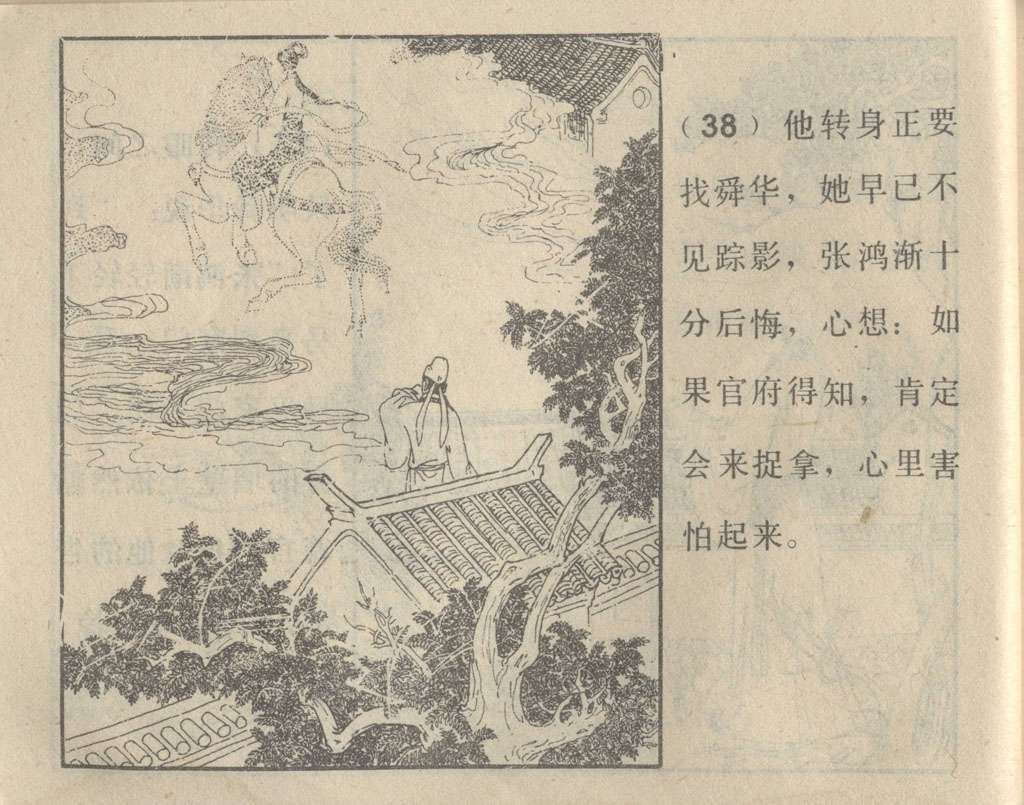 （38）他转身正要
找舜华，她早已不
见踪影，张鸿渐十
分后悔，心想：如
果官府得知，肯定
会来捉拿，心里害
怕起来。